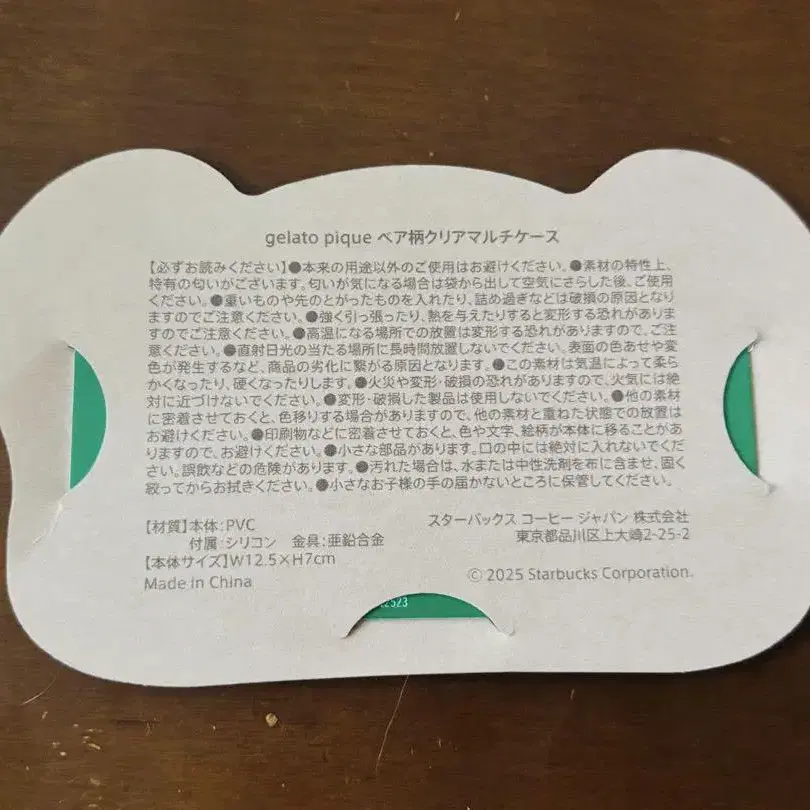 gelato pique ベア柄クリアマルチケース
【必ずお読みください】●本来の用途以外のご使用はお避けください。●素材の特性上、
特有の匂いがございます。匂いが気になる場合は袋から出して空気にさらした後、ご使用
ください。●重いものや先のとがったものを入れたり、詰め過ぎなどは破損の原因となり
ますのでご注意ください。●強く引っ張ったり、熱を与えたりすると変形する恐れがありま
すのでご注意ください。●高温になる場所での放置は変形する恐れがありますので、ご注
意ください。●直射日光の当たる場所に長時間放置しないでください。表面の色あせや変
色が発生するなど、商品の劣化に繋がる原因となります。●この素材は気温によって柔ら
かくなったり、硬くなったりします。●火災や変形・破損の恐れがありますので、火気には絶
対に近づけないでください。●変形・破損した製品は使用しないでください。●他の素材
に密着させておくと、色移りする場合がありますので、他の素材と重ねた状態での放置は
お避けください。●印刷物などに密着させておくと、色や文字、絵柄が本体に移ることがあ
りますので、お避けください。●小さな部品があります。口の中には絶対に入れないでくだ
さい。誤飲などの危険があります。●汚れた場合は、水または中性洗剤を布に含ませ、固く
絞ってからお拭きください。●小さなお子様の手の届かないところに保管してください。
【材質】本体:PVC
付属:シリコン 金具:亜鉛合金
【本体サイズ】W12.5×H7cm
Made in China
スターバックス コーヒー ジャパン 株式会社
東京都品川区上大崎2-25-2
© 2025 Starbucks Corporation.